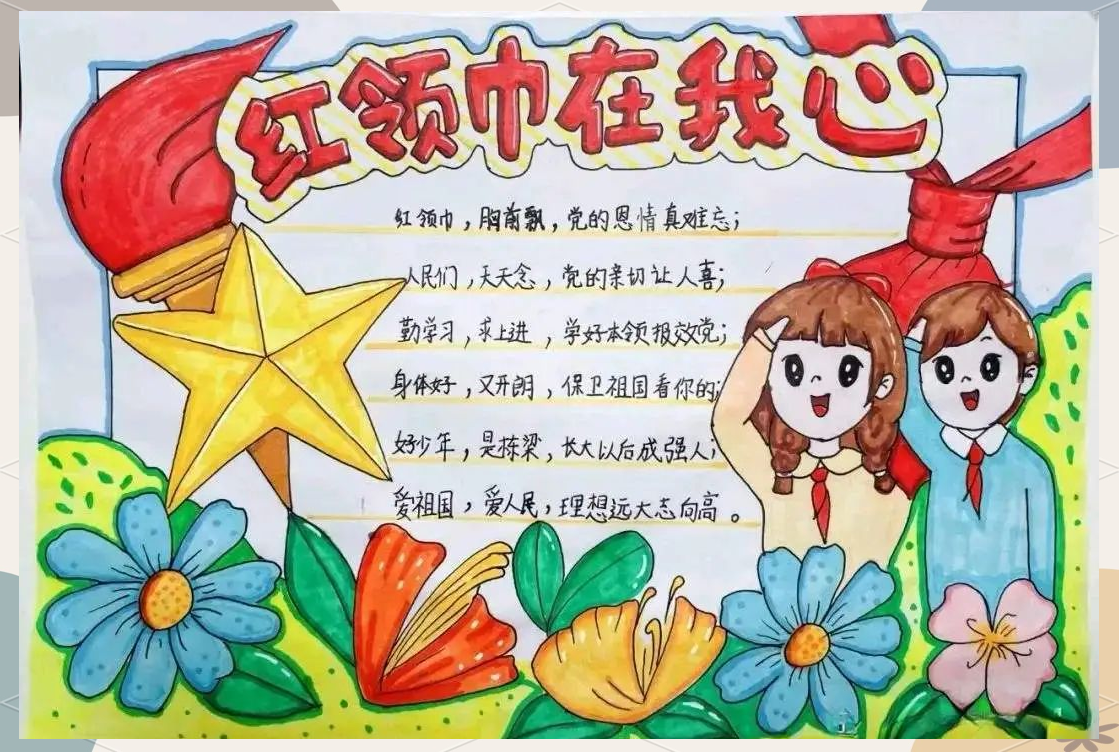 红领巾在我心
红领巾，胸前飘，党的恩情真难忘；
人民们，天天念，党的亲切让人喜；
勤学习，求上进，学好本领报效党；
身体好，又开朗，保卫祖国看你的；
好少年，是栋梁，长大以后成强人；
爱祖国，爱人民，理想远大志向高。